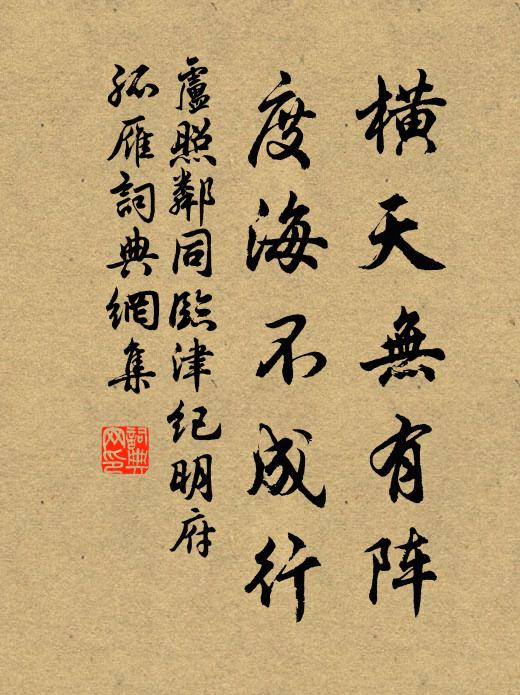 横天無有阵
度海不成行
盧照鄰同臨津紀明府
孤雁詞典網集
詞典
网印